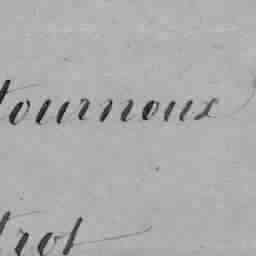 tournoux
trot